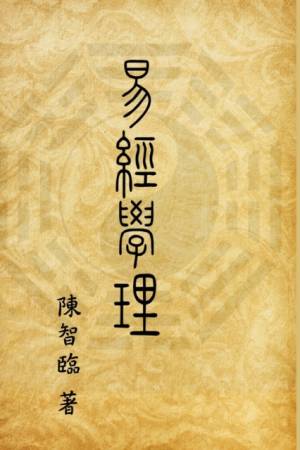 易經學理
陳智臨 著